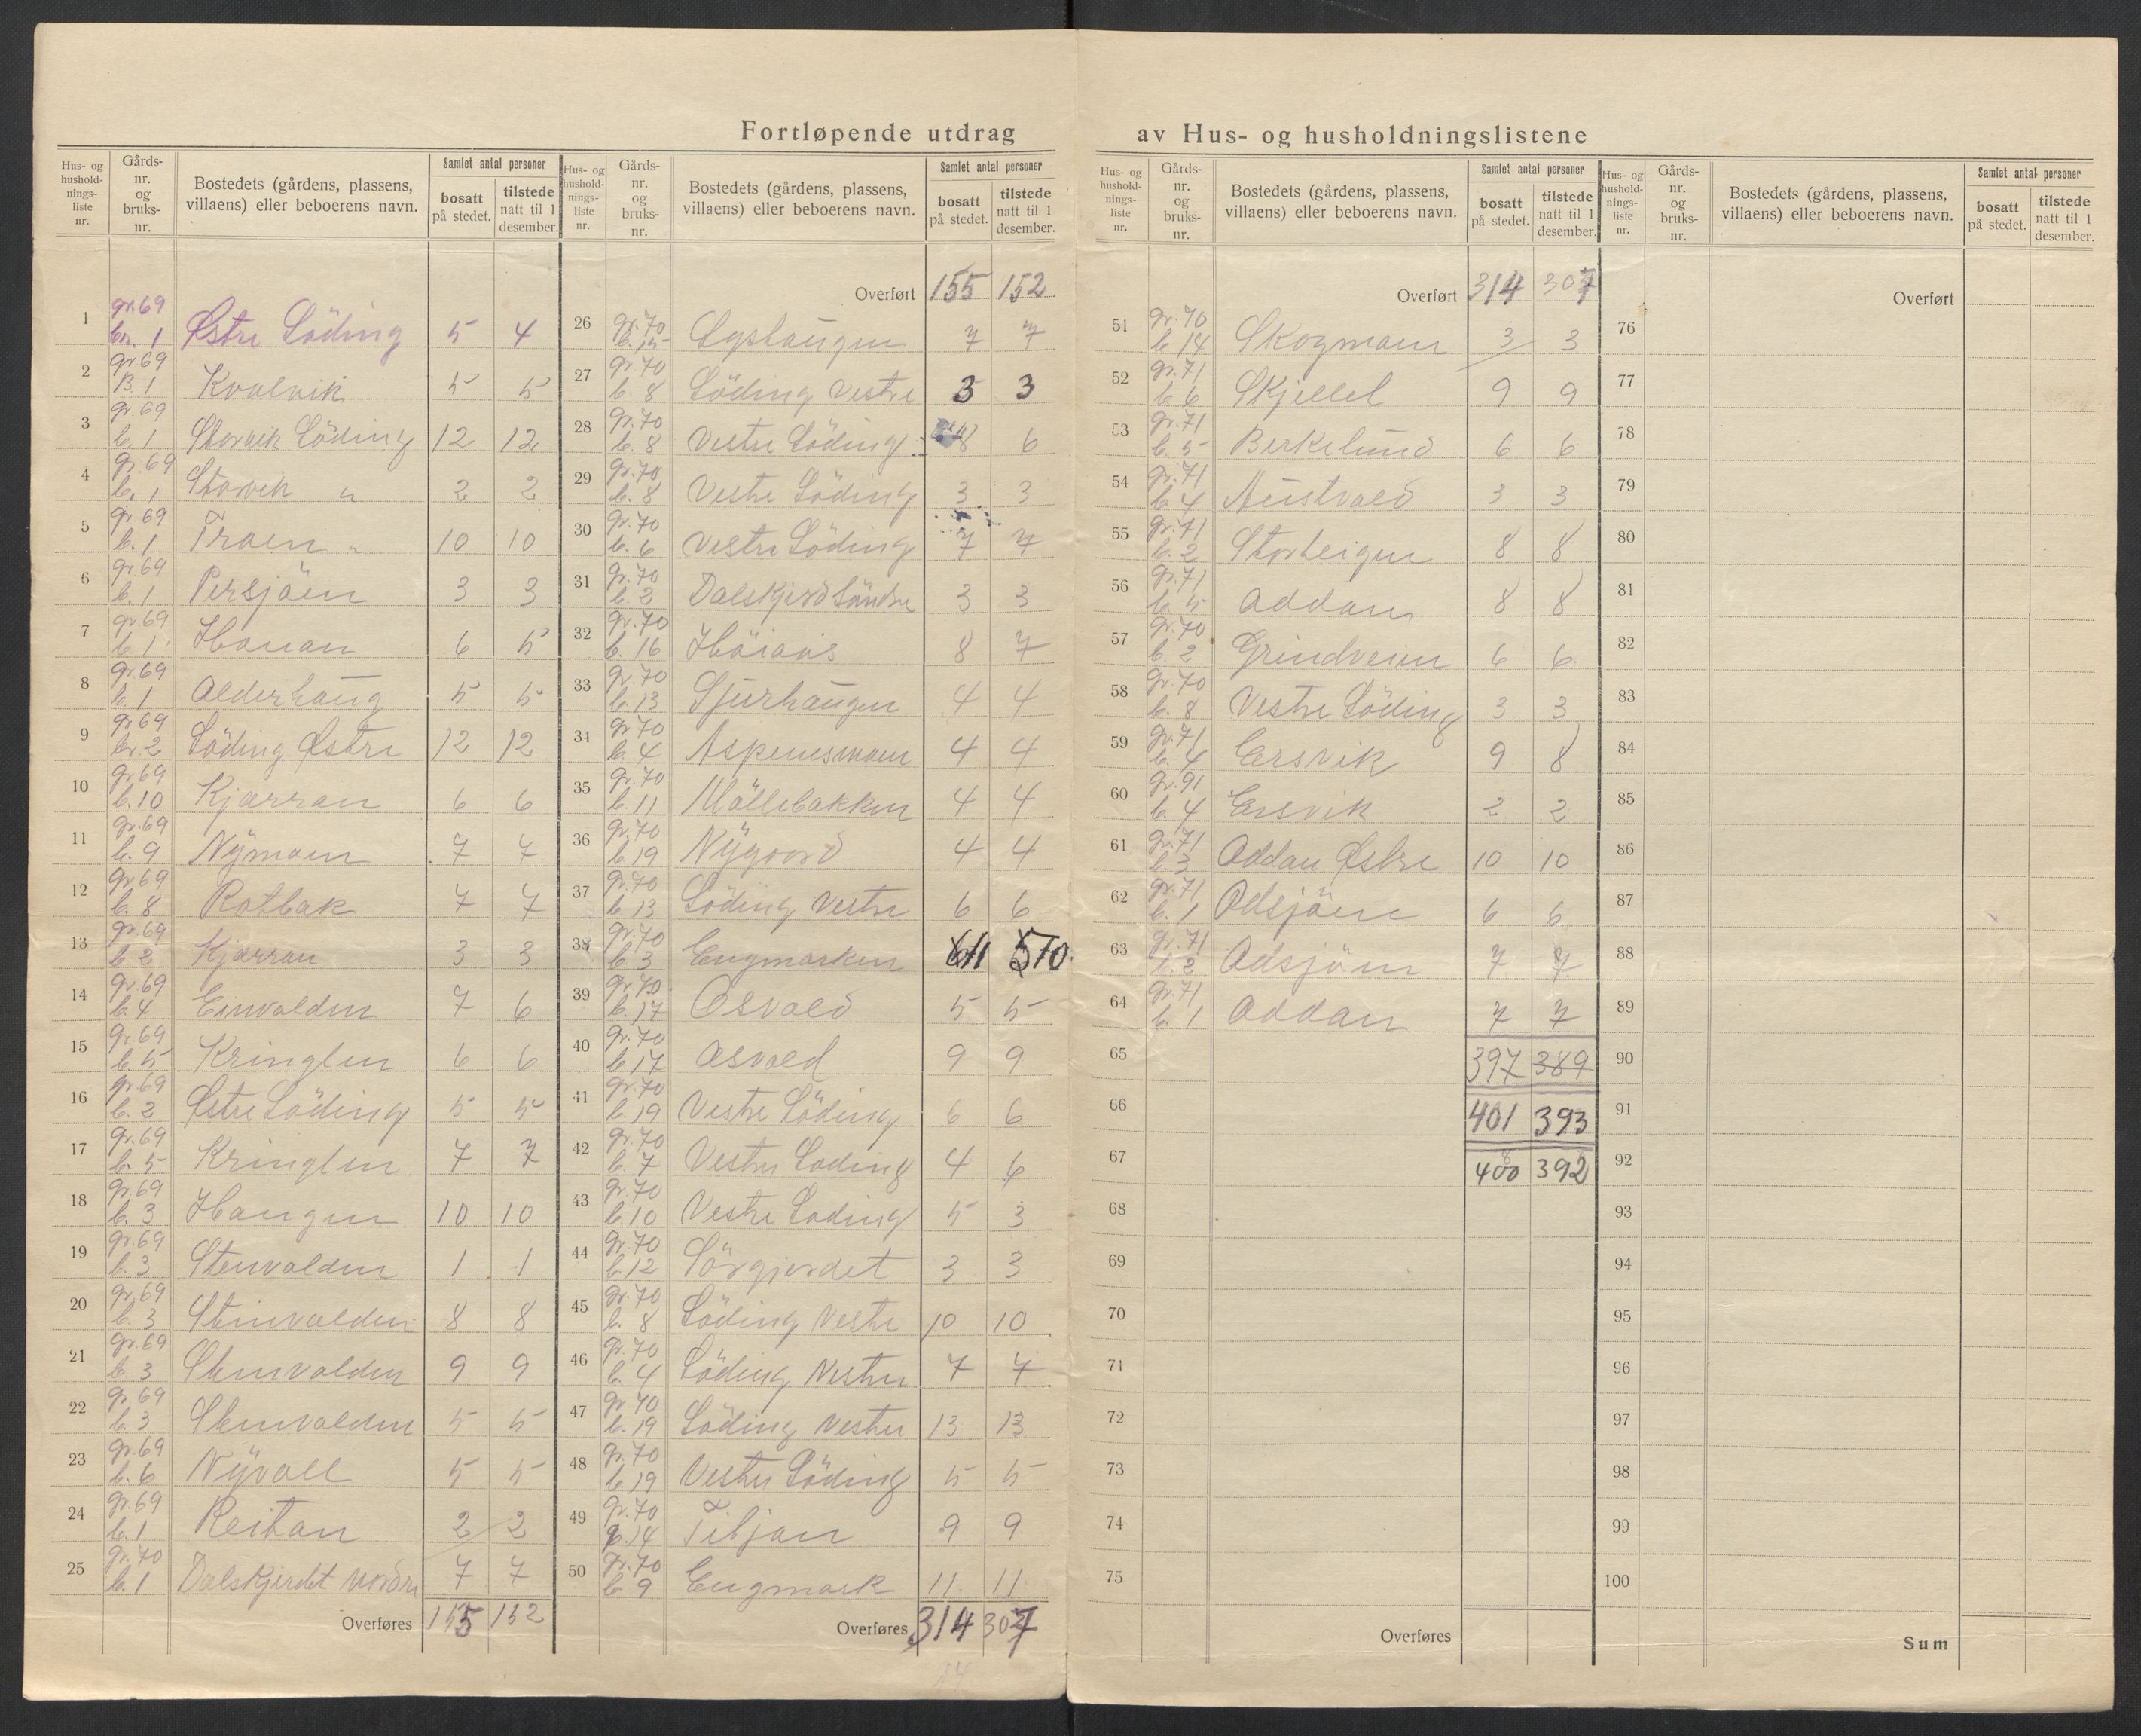 Fortløpende utdrag av Hus- og husholdningslistene
Hus- og husholdnings-liste nr. | Gårds-nr. og bruks-nr. | Bostedets (gårdens, plassens, villaens) eller beboerens navn. | Samlet antal personer | bosatt på stedet. | tilstede natt til 1 desember.
1 gr.69 br. 1 Østre Löding 5 4
2 gr.69 B. 1 Kvalvik 5 5
3 gr.69 b. 1 Storvik Löding 12 12
4 gr.69 b. 1 Storvik " 2 2
5 gr.69 b. 1 Traen " 10 10
6 gr.69 b. 1 Persjöen 3 3
7 gr.69 b. 1 6 5
8 gr.69 b. 1 Alderhaug 5 5
9 gr.69 br. 2 Löding Østre 12 12
10 gr.69 b. 10 Kjærran 6 6
11 gr.69 b. 9 Nymoen 7 7
12 gr.69 b. 8 Rotbak 7 7
13 gr.69 b. 2 Kjærran 3 3
14 gr.69 b. 4 Envolden 7 6
15 gr.69 b. 5 Kringlen 6 6
16 gr.69 b. 2 Østre Löding 5 5
17 gr.69 b. 5 Kringlen 7 7
18 gr.69 b. 3 Haugen 10 10
19 gr.69 b. 3 Stenvolden 1 1
20 gr.69 b. 3 Stenvolden 8 8
21 gr.69 b. 3 Stenvolden 9 9
22 gr.69 b. 3 Stenvolden 5 5
23 gr.69 b. 6 Nyvoll 5 5
24 gr.69 b. 1 Reitan 2 2
25 gr.70 b. 1 Dalskjerdet nordre 7 7
Overføres 155 152
Hus- og husholdnings-liste nr. | Gårds-nr. og bruks-nr. | Bostedets (gårdens, plassens, villaens) eller beboerens navn. | Samlet antal personer | bosatt på stedet. | tilstede natt til 1 desember.
Overført 155 152
26 gr.70 b. 15 Lyshaugen 7 7
27 gr.70 b. 8 Löding Vestre 3 3
28 gr.70 b. 8 Vestre Löding 8 6
29 gr.70 b. 8 Vestre Löding 3 3
30 gr.70 b. 6 Vestre Löding 7 7
31 gr.70 b. 2 Dalskjerd Söndre 3 3
32 gr.70 b. 16 8 7
33 gr.70 b. 13 Sjurhaugen 4 4
34 gr.70 b. 4 Aspenesmoen 4 4
35 gr.70 b. 11 Möllebakken 4 4
36 gr.70 b 19 Nygaard 4 4
37 gr.70 b 13 Löding Vestre 6 6
38 gr.70 b 3 Engmarken 11 10
39 gr.70 b. 17 Osvald 5 5
40 gr.70 b. 17 Osvald 9 9
41 gr.70 b. 19 Vestre Löding 6 6
42 gr.70 b. 7 Vestre Löding 4 6
43 gr.70 b. 10 Vestre Löding 5 3
44 gr.70 b. 12 Sörgjerdet 3 3
45 gr.70 b. 8 Löding Vestre 10 10
46 gr.70 b. 4 Löding Vestre 7 7
47 gr.70 b. 19 Löding Vestre 13 13
48 gr.70 b. 19 Vestre Löding 5 5
49 gr.70 b. 14 Tiljan 9 9
50 gr.70 b 9 Engmark 11 11
Overføres 314 307
14
Hus- og husholdnings-liste nr. | Gårds-nr. og bruks-nr. | Bostedets (gårdens, plassens, villaens) eller beboerens navn. | Samlet antal personer | bosatt på stedet. | tilstede natt til 1 desember.
Overført 314 307
51 gr.70 b 14 Skogmoen 3 3
52 gr.71 b. 6 Skjellel 9 9
53 gr.71 b. 5 Berkelund 6 6
54 gr.71 b 4 Austvold 3 3
55 gr.71 b. 2 Storteigen 8 8
56 gr.71 b. 5 Oddan 8 8
57 gr.70 b. 2 Grindveien 6 6
58 gr.70 b. 8 Vestre Löding 3 3
59 gr.71 b. 4 Ersvik 9 8
60 gr.91 b. 4 Ersvik 2 2
61 gr.71 b. 3 Oddan Østre 10 10
62 gr.71 b. 1 Odsjöen 6 6
63 gr.71 b. 2 Odsjöen 7 7
64 gr.71 b. 1 Oddan 7 7
65 397 389
66 401 393
67 400 392
68
69
70
71
72
73
74
75
Overføres
Hus- og husholdnings-liste nr. | Gårds-nr. og bruks-nr. | Bostedets (gårdens, plassens, villaens) eller beboerens navn. | Samlet antal personer | bosatt på stedet. | tilstede natt til 1 desember.
Overført
76
77
78
79
80
81
82
83
84
85
86
87
88
89
90
91
92
93
94
95
96
97
98
99
100
Sum